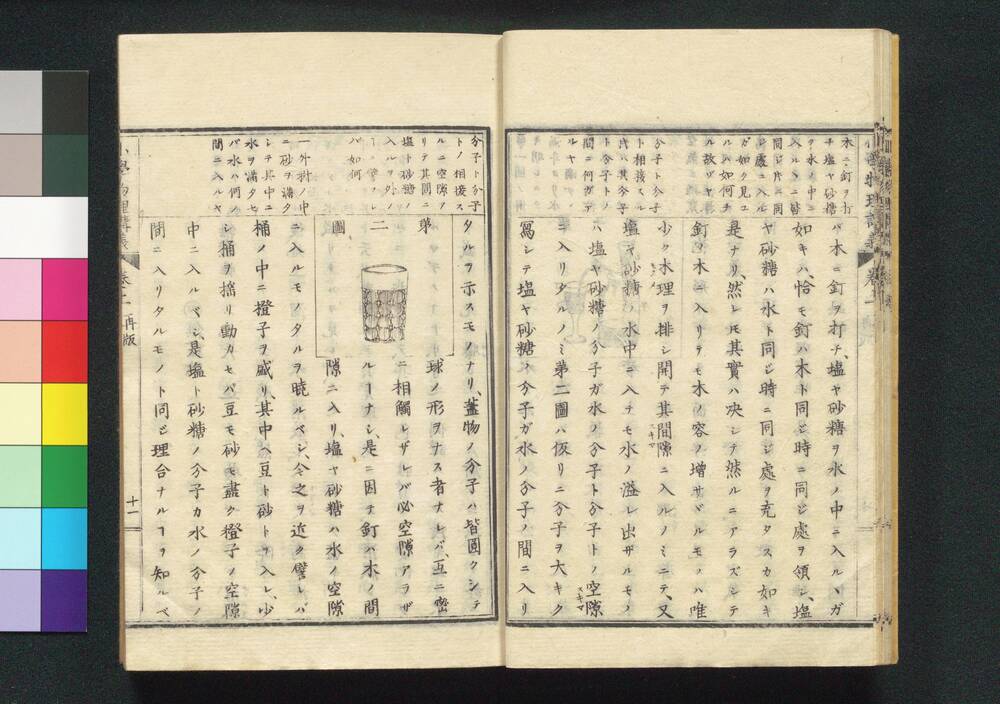 木ニ釘ヲ打
チ塩ヤ砂糖
ヲ水ノ中ニ
入ルヽニ皆
同ジ片ニ同
ジ處ニ入ル
ガ如ク見ユ
ルハ如何チ
ル故ゾヤ
分子ト分子
ト相接スル
氏ハ其分子
ト分子トノ
間ニ何ガア
ルヤ
ハ木ニ釘ヲ打チ、塩ヤ砂糖ヲ水ノ中ニ入ルヽガ
如キハ、恰モ釘ハ木ト同ジ時ニ同ジ處ヲ領シ、塩
ヤ砂糖ハ水ト同ジ時ニ同ジ處ヲ充タスカ如キ
是ナリ、然レモ其實ハ决シテ然ルニアラズシテ
釘ノ木ニ入リテモ木ノ容ノ増サヾルモノハ唯
少ク木理ヲ排シ開テ其間隙ニ入ルノミニテ、又
スキマ
塩ヤ砂糖ノ水中ニ入テモ水ノ溢レ出ザルモノ
ハ塩ヤ砂糖ノ分子ガ水ノ分子ト分子トノ空隙
スキマ
ニ入リタルノミ第二圖ハ仮リニ分子ヲ大キク
寫シテ塩ヤ砂糖ノ分子ガ水ノ分子ノ間ニ入リ
分子ト分子
トノ相接ス
ルニ空隙ア
リテ其間ニ
塩ト砂糖ノ
入ルヲ外ノ
バ如何
一外科ノ中
ニ砂ヲ満タ
シテ其中ニ
水ヲ満タセ
バ水ハ何ノ
間ニ入ルヤ
タルヲ示スモノナリ、蓋物ノ分子ハ皆圓クシテ
球ノ形ヲナス者ナレバ、互ニ密
ニ相觸レザレバ必空隙アラザ
ルヿナシ、是ニ因テ釘ハ木ノ間
隙ニ入リ、塩ヤ砂糖ハ水ノ空隙
第二圖
ニ入ルモノタルヲ暁ルベシ、今之ヲ近ク譬レバ
桶ノ中ニ橙子ヲ盛リ、其中ヘ豆ト砂トヲ入レ、少
シ桶ヲ揺リ動カセバ豆モ砂モ盡ク橙子ノ空隙
中ニ入ルベシ、是塩ト砂糖ノ分子カ水ノ分子ノ
間ニ入リタルモノト同ジ理合ナルヿヲ知ルベ
卷二
再版
十一